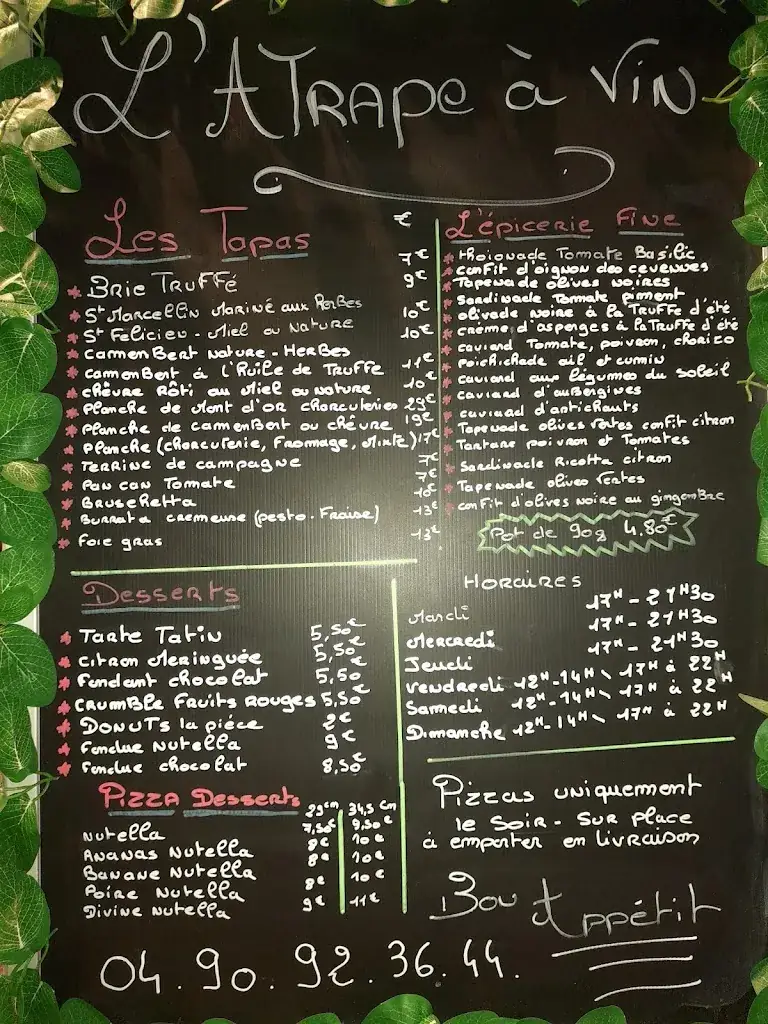 L'ATRAPE à VIN
Les Tapas €
Brie TRUFFÉ 7€
St Marcellin Mariné aux Herbes 9€
St Felicien - Miel ou NATURE 10€
camemBert NATURE - HerBes 10€
camemBert à l'Huile de TRUFFe 11€
chèvre Rôti au Miel ou nature 10€
Planche de Mont d'or charcuteries 29€
Planche de camemBert ou chèvre 19€
Planche (charcuterie, Fromage, Mixte) 17€
Terrine de campagne 7€
Pan con Tomate 7€
Bruschetta 10€
Burrata cremeuse (pesto - Fraise) 13€
Foie gras 13€
L'épicerie Fine
Thoionade Tomate Basilic
confit d'oignon des cevennes
Tapenade olives noires
Sardinade Tomate piment
olivade noire à la Truffe d'été
crème d'asperges à la Truffe d'été
caviard Tomate, poivron, chorizo
poichichade ail et cumin
caviard aux légumes du soleil
caviard d'auBergines
caviard d'artichauts
Tapenade olives vertes confit citron
Tartare poivron et Tomates
Sardinade Ricotta citron
Tapenade olives vertes
confit d'olives noire au gingemBre
Pot de 90g 4.80€
Desserts
Tarte Tatin 5,50€
citron Meringuée 5,50€
Fondant chocolat 5,50
CRUMBle Fruits Rouges 5,50€
DONUTS la pièce 2€
Fondue Nutella 9€
Fondue chocolat 8,50€
Pizza Desserts 29cm 34,5 cm
NUTELLA 7,50€ 9,50€
ANANAS NUTELLA 8€ 10€
Banane Nutella 8€ 10€
Poire Nutella 8€ 10€
Divine Nutella 9€ 11€
HORAIRES
Mardi 17H - 21H30
Mercredi 17H - 21H30
Jeudi 17H - 21H30
Vendredi 12H-14H \ 17H à 22H
Samedi 12H-14H \ 17H à 22H
Dimanche 12H-14H \ 17H à 22H
Pizzas uniquement
le SOIR - SUR place
à emporter en livraison
Bon Appétit
04.90.92.36.44.